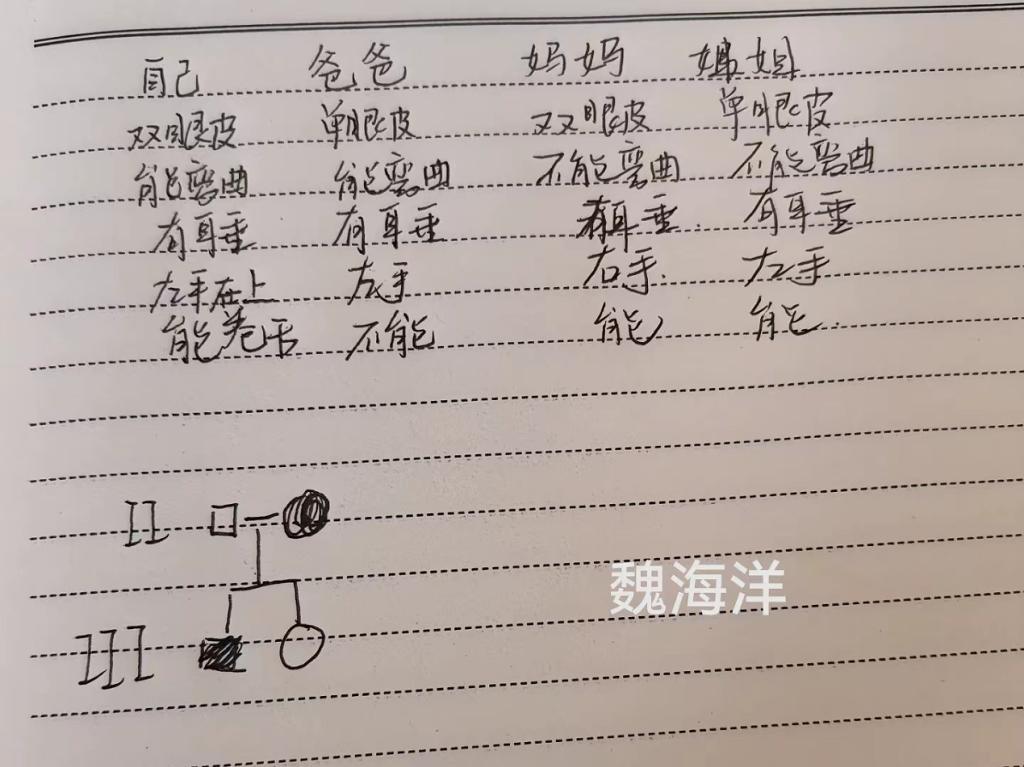 自己 爸爸 妈妈 姐姐
双眼皮 单眼皮 双眼皮 单眼皮
能弯曲 能弯曲 不能弯曲 不能弯曲
有耳垂 有耳垂 有耳垂 有耳垂
左手在上 左手 右手. 左手
能卷舌 不能 能 能.
II
魏海洋
III